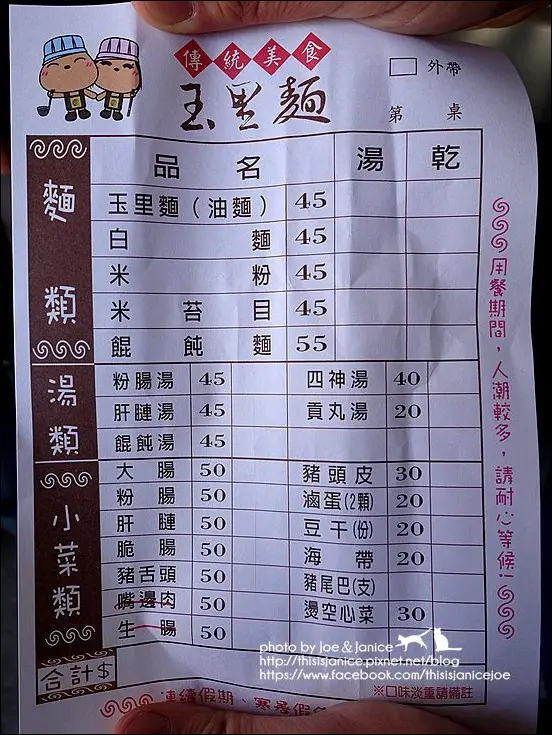 傳統美食
玉里麵
外帶
第 桌
品名 湯 乾
麵類
玉里麵(油麵) 45
白麵 45
米粉 45
米苔目 45
餛飩麵 55
湯類
粉腸湯 45 四神湯 40
肝腱湯 45 貢丸湯 20
餛飩湯 45
小菜類
大腸 50 豬頭皮 30
粉腸 50 滷蛋(2顆) 20
肝腱 50 豆干(份) 20
脆腸 50 海帶 20
豬舌頭 50 豬尾巴(支)
嘴邊肉 50 燙空心菜 30
生腸 50
合計$
※口味淡重請備註
用餐期間,人潮較多,請耐心等候!
連續假期、寒暑假
photo by Joe & Janice
http://thisisjanice.pixnet.net/blog
https://www.facebook.com/thisisjanicejoe